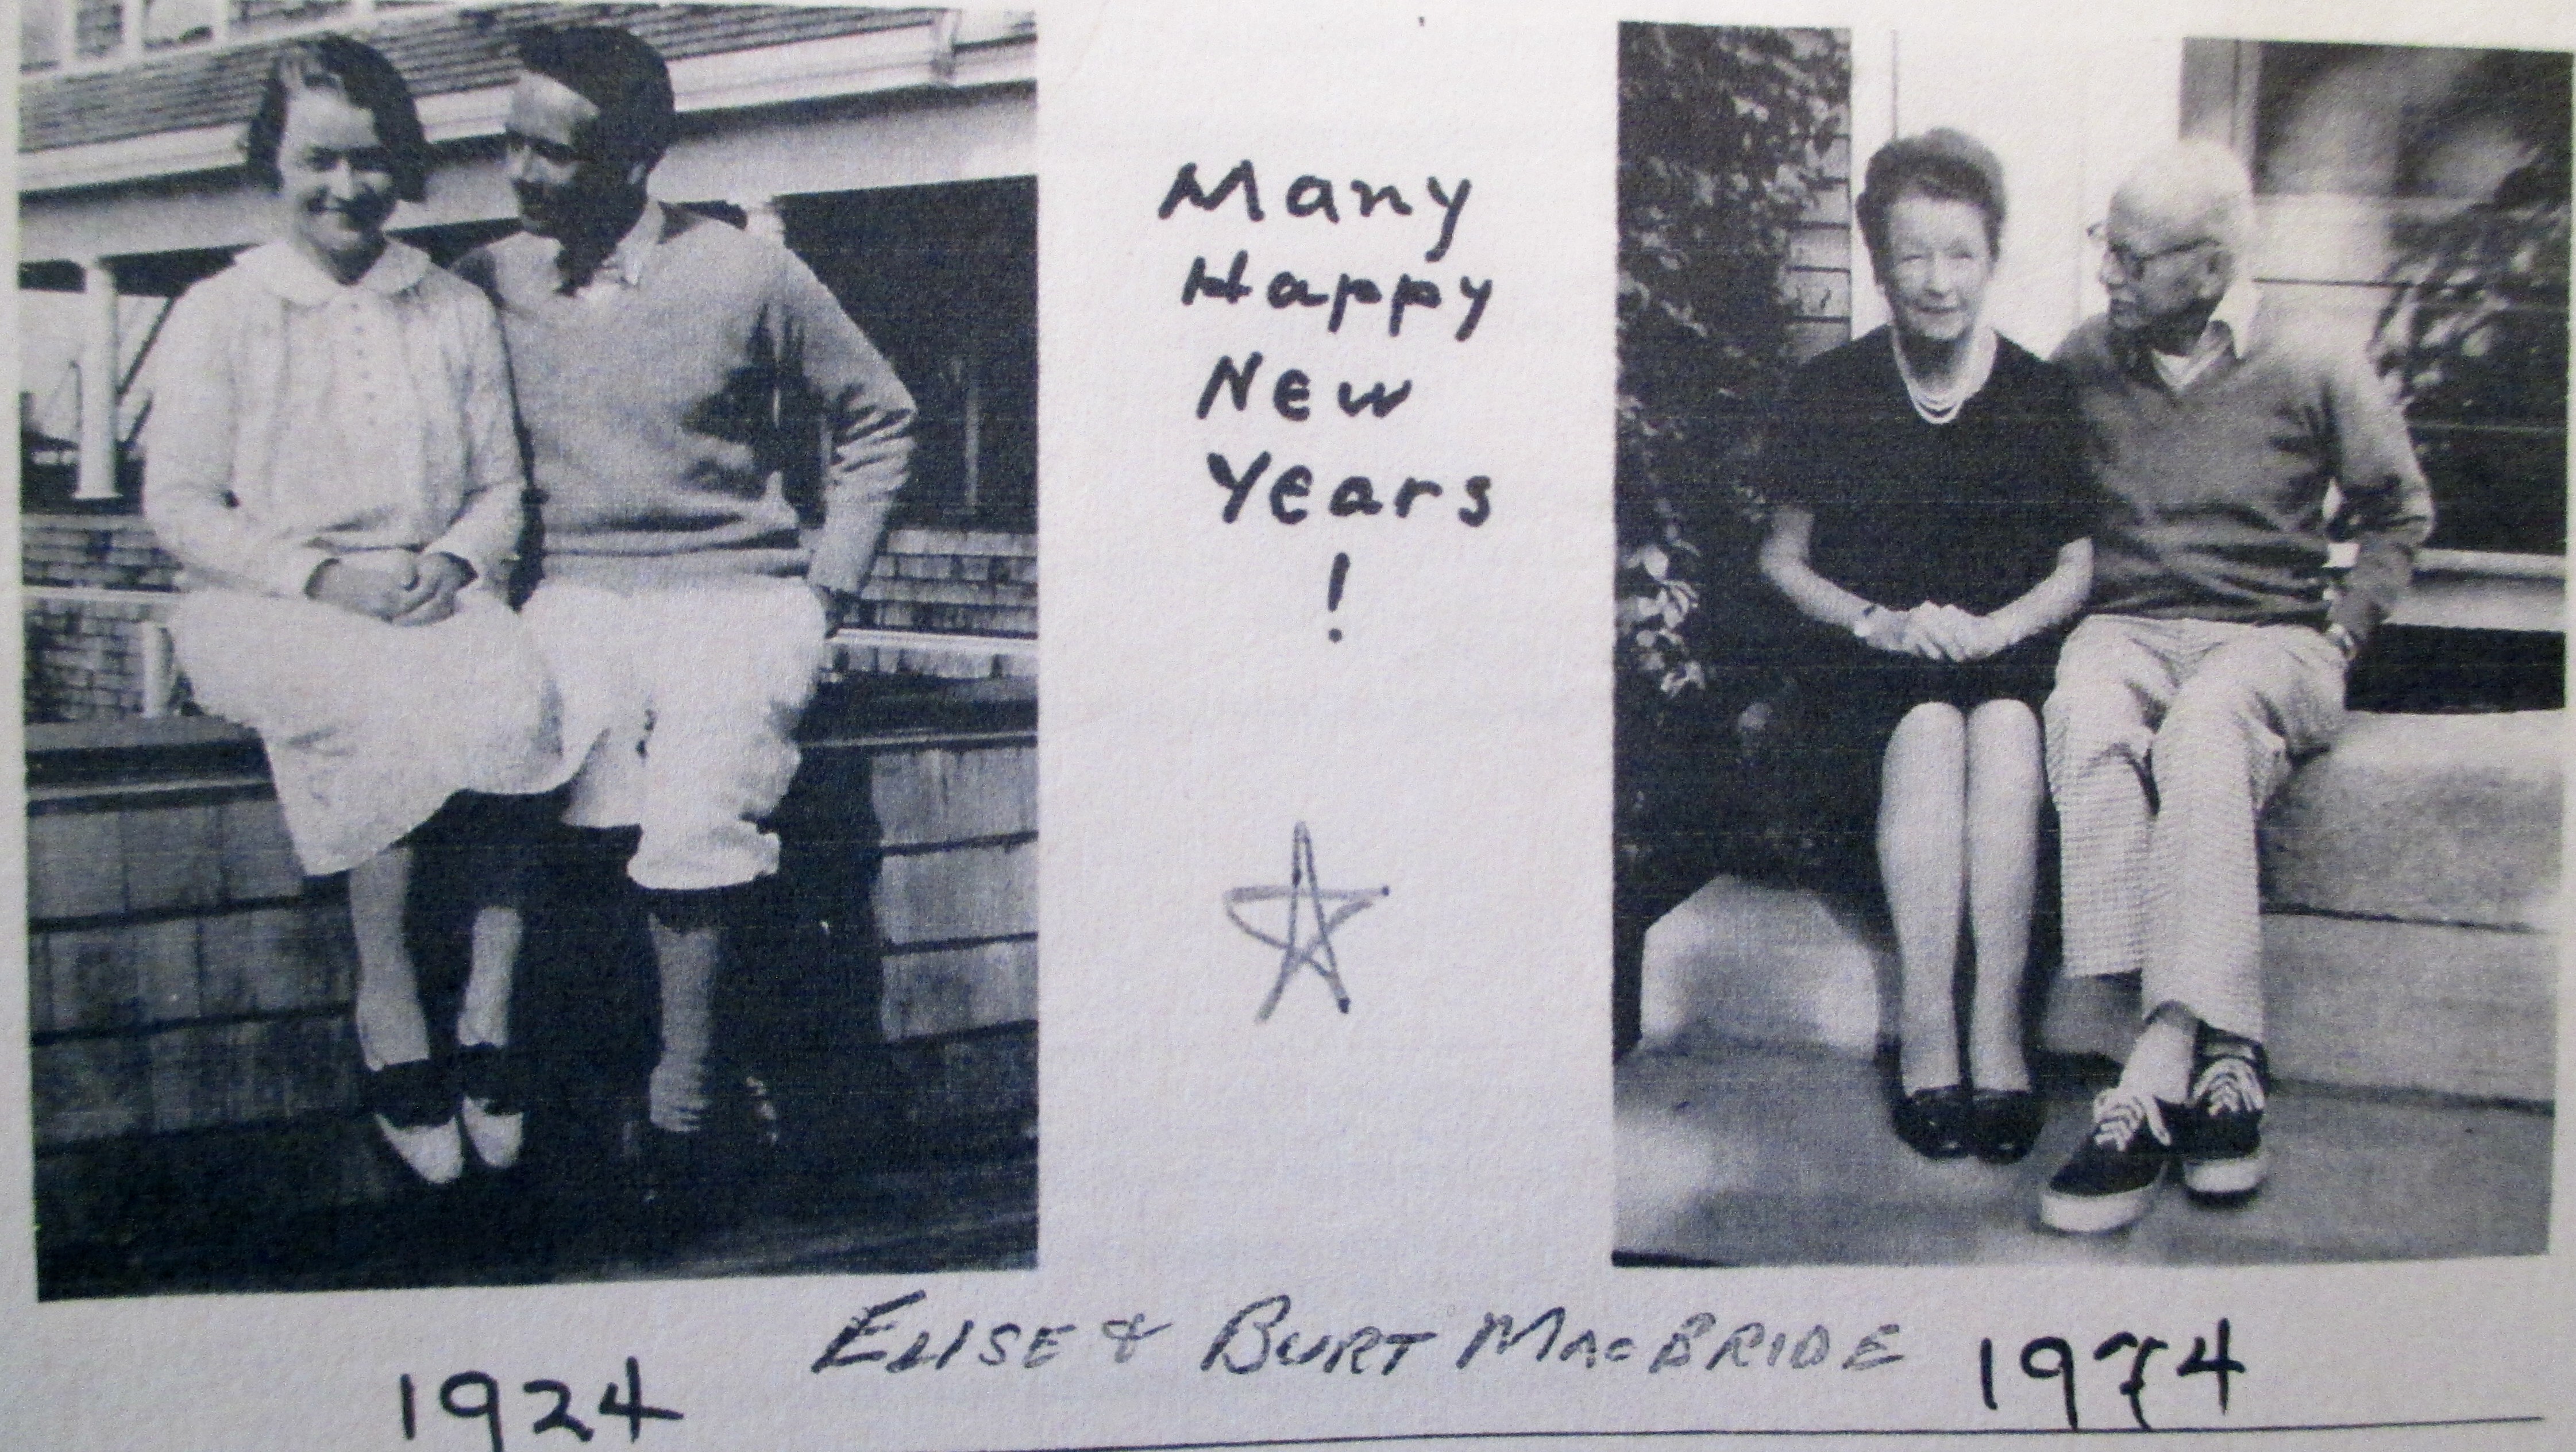 Many
Happy
New
Years
!
ELISE & BURT MACBRIDE
1924
1974